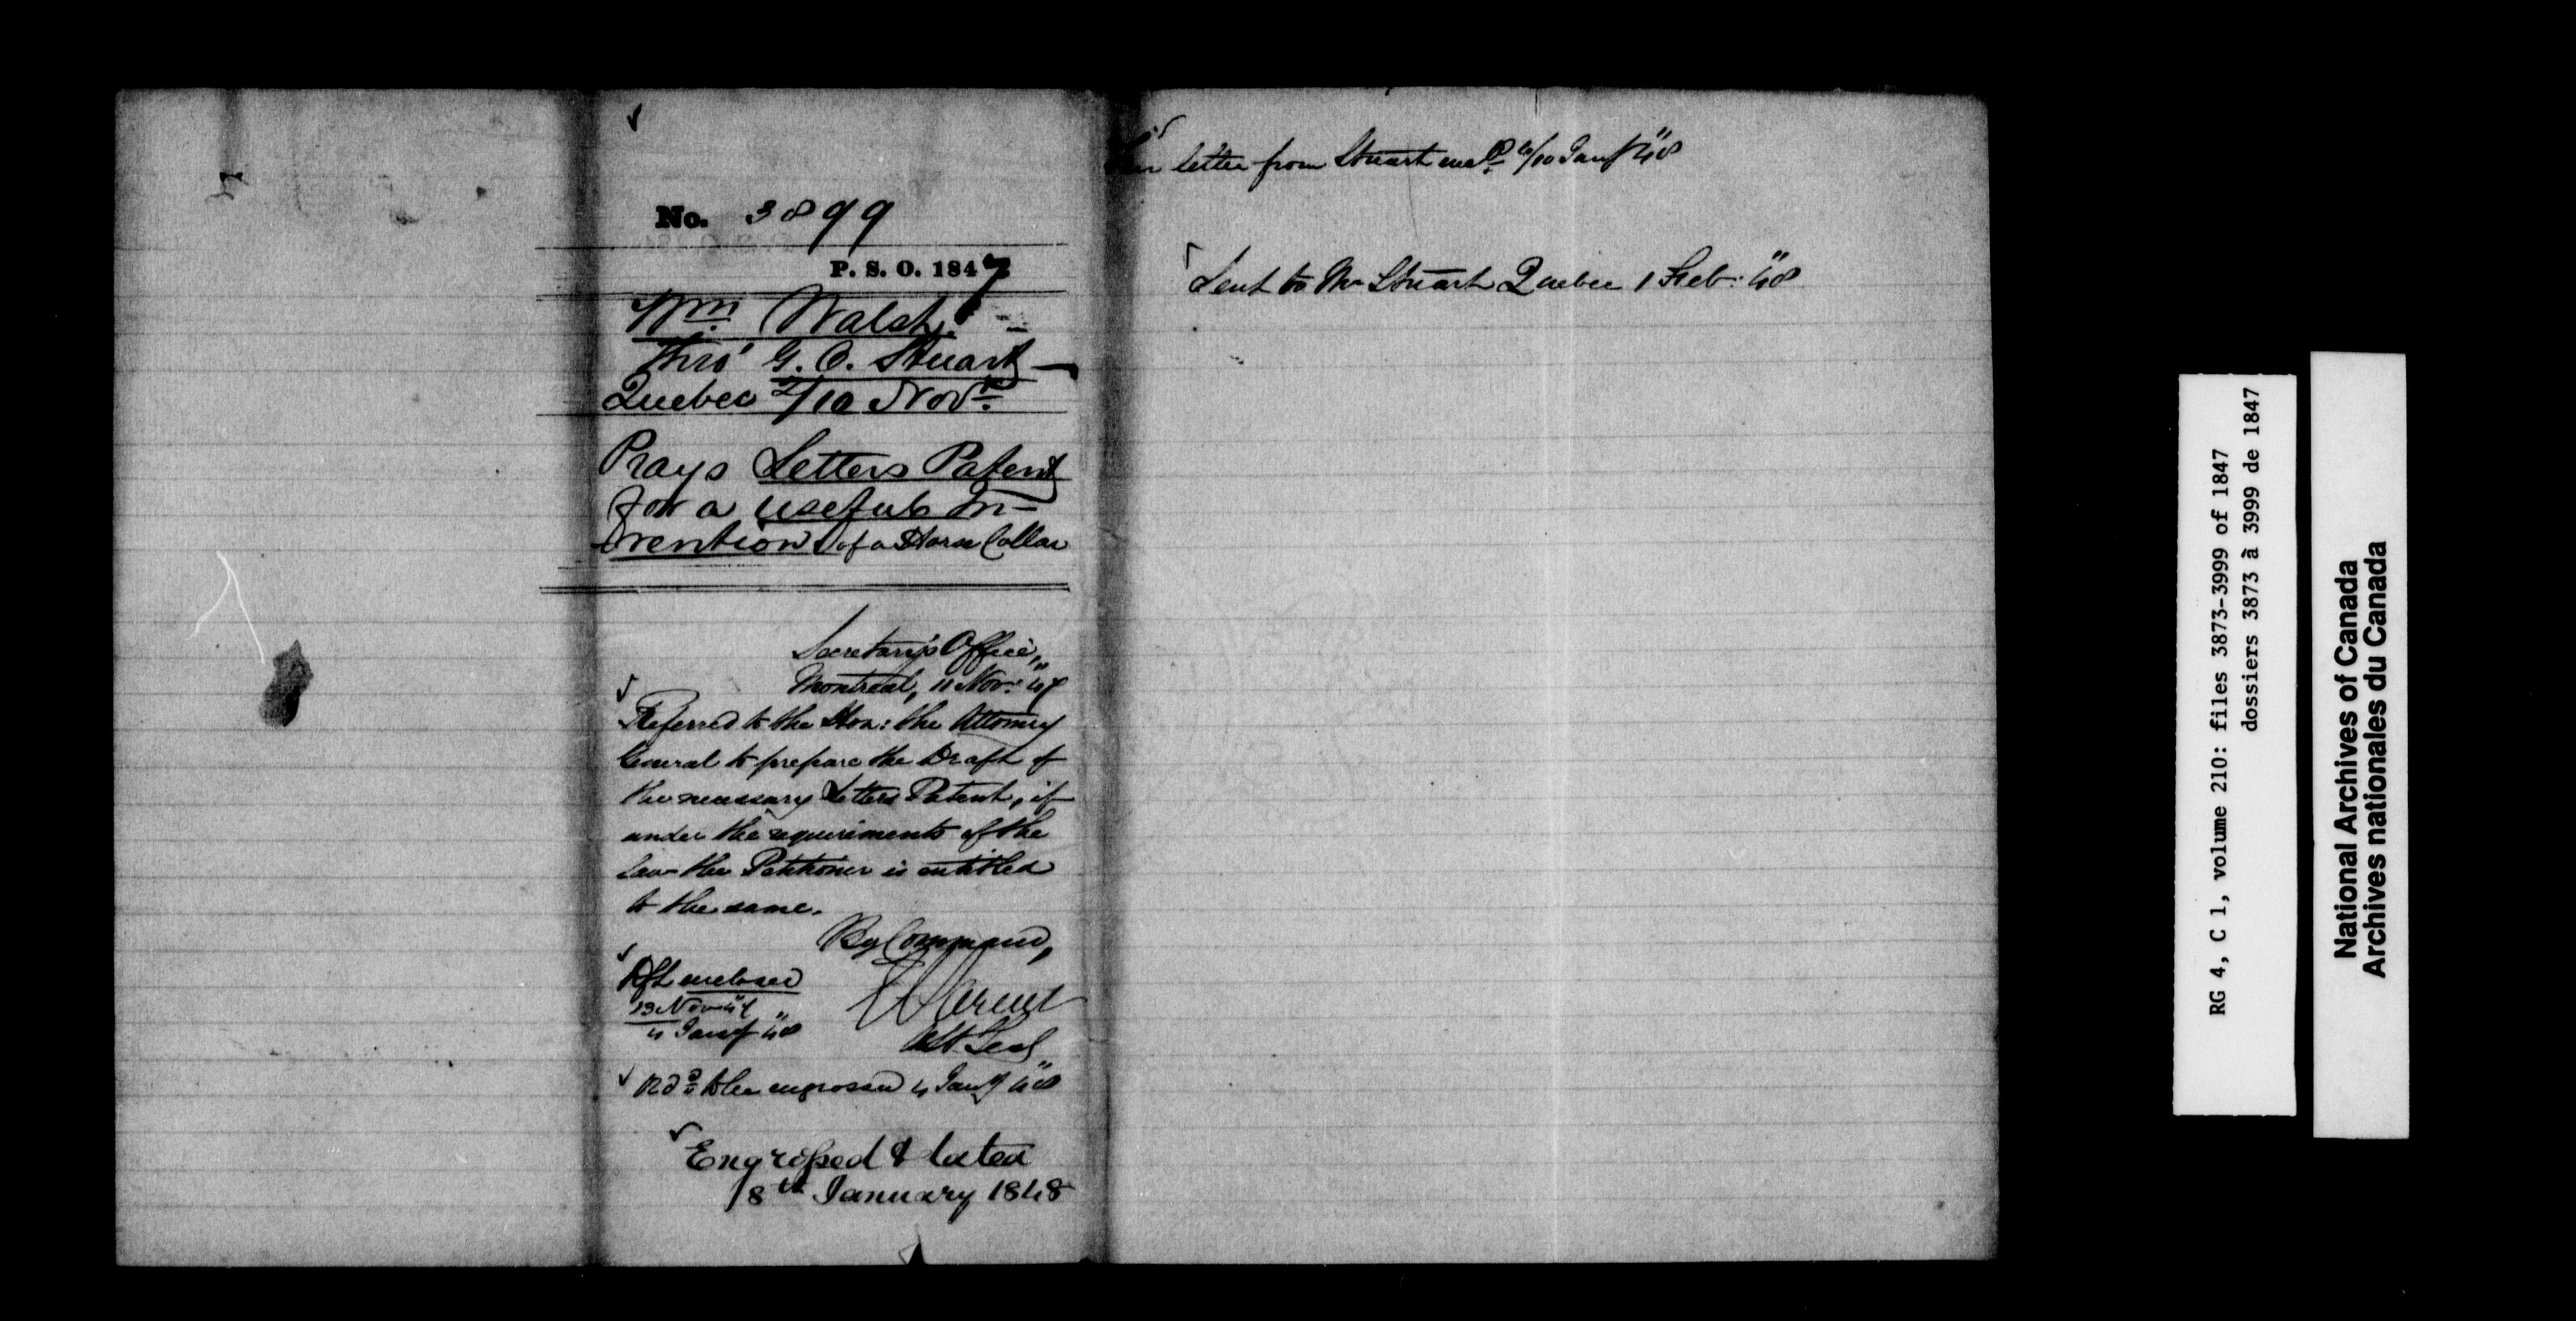 No. 3899
P. S. O. 1847
Wm Walsh
Thro' G. O. Stuart
Quebec 9/10 Novr
Prays Letters Patent
for a useful In-
vention of a Horse Collar
Secretary's Office,
Montreal, 11 Nov: "47
Referred to the Hon: the Attorney
General to prepare the Draft of
the necessary Letters Patent, if
under the requirements of the
Law the Petitioner is entitled
to the same.
By Command,
Dft enclosed
23 Nov "47
4 Jany "48
Asst Secy
to be engrossed 4 Jany "48
Engrossed & dated
18th January 1848
letter from Stuart encl 6/10 Jany "48
Sent to Mr Stuart Quebec 1 Feb: "48
RG 4, C 1, volume 210: files 3873-3999 of 1847
dossiers 3873 à 3999 de 1847
National Archives of Canada
Archives nationales du Canada